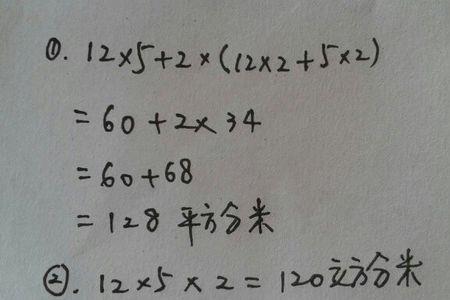 ①. 12×5+2×(12×2+5×2)
=60+2×34
=60+68
=128 平方分米
②. 12×5×2=120立方分米